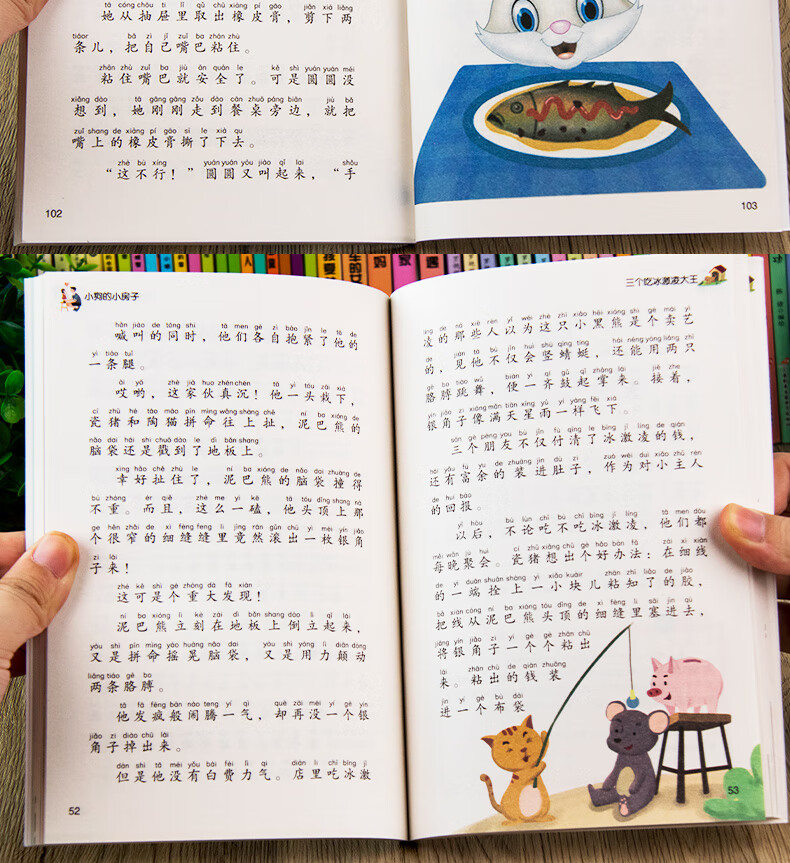 tā cóng chōu ti li qǔ chū xiàng pí gāo jiǎn xià liǎng
她从抽屉里取出橡皮膏，剪下两
tiáor bǎ zì jǐ zuǐ ba zhān zhù
条儿，把自己嘴巴粘住。
zhān zhù zuǐ ba jiù ān quán le kě shì yuán yuán méi
粘住嘴巴就安全了。可是圆圆没
xiǎng dào tā gāng gāng zǒu dào cān zhuō páng biān jiù bǎ
想到，她刚刚走到餐桌旁边，就把
zuǐ shang de xiàng pí gāo sī le xià qu
嘴上的橡皮膏撕了下去。
zhè bù xíng yuán yuán yòu jiào qǐ lai shǒu
“这不行！”圆圆又叫起来，“手
102
103
小狗的小房子
hǎn jiào de tóng shí tā men gè zì bào jǐn le tā de
喊叫的同时，他们各自抱紧了他的
yì tiáo tuǐ
一条腿。
āi yō zhè jiā huo zhēn chén tā yì tóu zāi xià
哎哟，这家伙真沉！他一头栽下，
cí zhū hé táo māo pīn mìng wǎng shàng chě ní ba xióng de
瓷猪和陶猫拼命往上扯，泥巴熊的
nǎo dai hái shi chuō dào le dì bǎn shang
脑袋还是戳到了地板上。
xìng hǎo chě zhù le ní ba xióng de nǎo dai zhuàng de
幸好扯住了，泥巴熊的脑袋撞得
bú zhòng ér qiě zhè me yì kē tā tóu dǐng shang nà
不重。而且，这么一磕，他头顶上那
ge hěn zhǎi de xì fèng feng li jìng rán gǔn chū yì méi yín jiǎo
个很窄的细缝缝里竟然滚出一枚银角
zi lái
子来！
zhè kě shì gè zhòng dà fā xiàn
这可是个重大发现！
ní ba xióng lì kè zài dì bǎn shang dào lì qǐ lái
泥巴熊立刻在地板上倒立起来，
yòu shì pīn mìng yáo huàng nǎo dai yòu shì yòng lì diān dòng
又是拼命摇晃脑袋，又是用力颠动
liǎng tiáo gē bo
两条胳膊。
tā fā fēng bān nào teng yí qì què zài méi yí gè yín
他发疯般闹腾一气，却再没一个银
jiǎo zi diào chū lái
角子掉出来。
dàn shì tā méi yǒu bái fèi lì qi diàn li chī bīng jī
但是他没有白费力气。店里吃冰激
52
三个吃冰激凌大王
líng de nà xiē rén yǐ wéi zhè zhī xiǎo hēi xióng shì gè mài yì
凌的那些人以为这只小黑熊是个卖艺
de jiàn tā bù jǐn huì shù qīng tíng hái néng yòng liǎng zhī
的，见他不仅会竖蜻蜓，还能用两只
gē bo tiào wǔ biàn yì qí gǔ qǐ zhǎng lái jiē zhe
胳膊跳舞，便一齐鼓起掌来。接着，
yín jiǎo zi xiàng mǎn tiān xīng yǔ yí yàng fēi xià
银角子像满天星雨一样飞下。
sān gè péng you bù jǐn fù qīng le bīng jī líng de qián
三个朋友不仅付清了冰激凌的钱，
hái yǒu fù yu de zhuāng jìn dù zi zuò wéi duì xiǎo zhǔ rén
还有富余的装进肚子，作为对小主人
de huí bào
的回报。
yǐ hòu bú lùn chī bù chī bīng jī líng tā men dōu
以后，不论吃不吃冰激凌，他们都
měi wǎn jù huì cí zhū xiǎng chū gè hǎo bàn fǎ zài xì xiàn
每晚聚会。瓷猪想出个好办法：在细线
de yì duān shuān shàng yì xiǎo kuàir zhān zhī liǎo de jiāo
的一端拴上一小块儿粘知了的胶，
bǎ xiàn cóng ní ba xióng tóu dǐng de xì fèng li sāi jìn qù
把线从泥巴熊头顶的细缝里塞进去，
jiāng yín jiǎo zi yí gè gè zhān chū
将银角子一个个粘出
lái zhān chū de qián zhuāng
来。粘出的钱装
jìn yí gè bù dài
进一个布袋
53